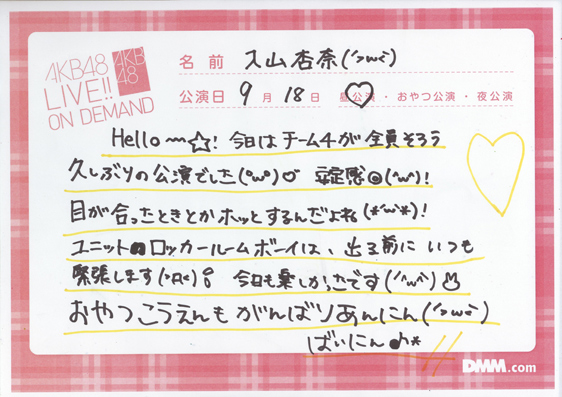 AKB48
LIVE!!
ON DEMAND
AKB
48
名前 入山杏奈(‘³ω`)
公演日 9月18日 昼公演・おやつ公演・夜公演
Hello〜☆! 今日はチーム4が全員そろう
久しぶりの公演でした(°ω°)♡ 安定感◎(^ω^)!
目が合ったときとかホッとするんだよね(*´ω`*)!
ユニットロッカールームボーイは、出る前にいつも
緊張します(>Д<) 今日も楽しかったです(´^ω^`)
おやつこうえんもがんばりあんにん(‘³ω`)
ばいにん♪*
DMM.com